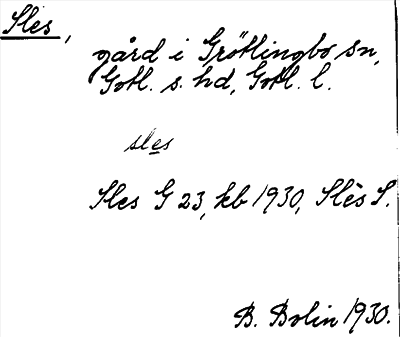 Sles,
gård i Grötlingbo sn,
Gotl. s. hd, Gotl. l.
sles
Sles G 23, kb 1930, Slès S.
B. Bolin 1930.